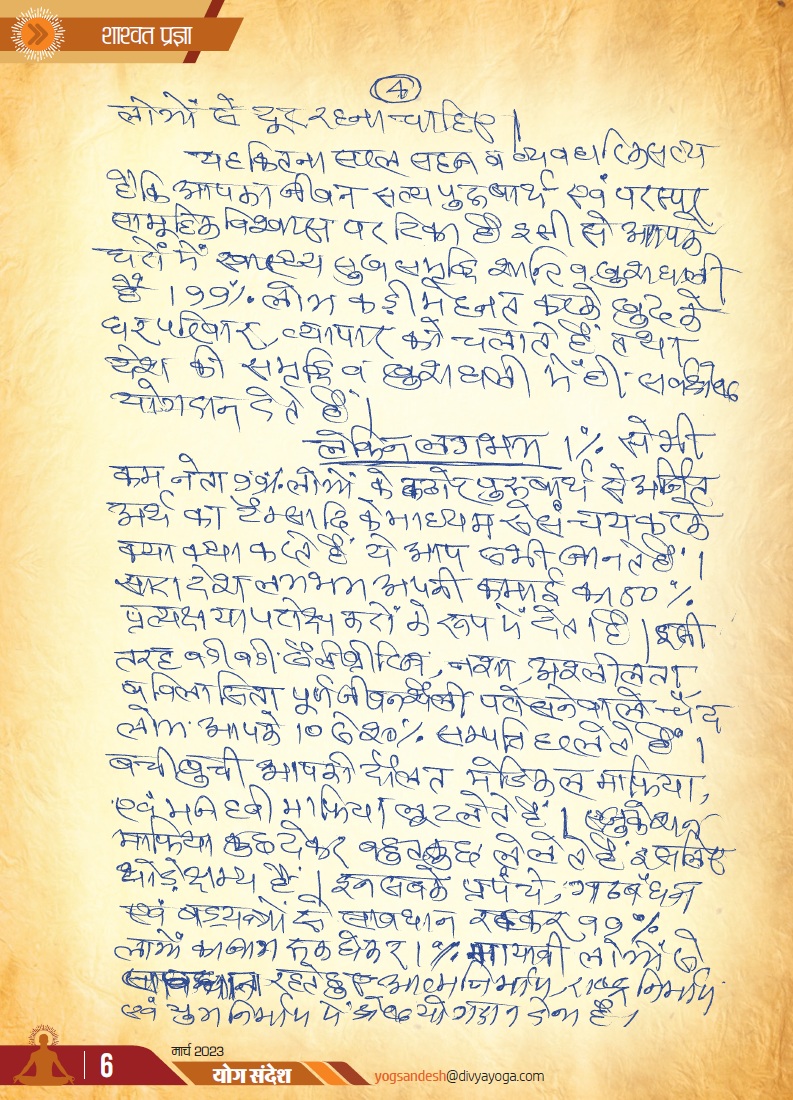 शाश्वत प्रज्ञा
4
लोगों से दूर रहना चाहिए।
यह कितना सरल सहज व व्यवहारिक सत्य
है कि आपका जीवन सत्य पुरुषार्थ एवं परस्पर
सामूहिक विश्वास पर टिका है इसी से आपके
घरों में स्वास्थ्य सुख समृद्धि शान्ति व खुशहाली
है। 99% लोग कड़ी मेहनत करके खुद के
घर परिवार, व्यापार को चलाते हैं तथा
देश की समृद्धि व खुशहाली में भी सर्वश्रेष्ठ
योगदान देते हैं।
लेकिन लगभग 1% से भी
कम नेता 99% लोगों के कठोर पुरुषार्थ से अर्जित
अर्थ का टैक्सादि के माध्यम से संचय करके
क्या क्या करते हैं ये आप सभी जानते हैं।
सारा देश लगभग अपनी कमाई का 50%
प्रत्यक्ष या परोक्ष करों के रूप में देता है। इसी
तरह बड़ी बड़ी नशा, अश्लीलता
व विलासिता पूर्ण जीवनशैली परोसने वाले चंद
लोग आपके 10 से 20% सम्पत्ति हर लेते हैं।
बची खुची आपकी दौलत मेडिकल माफिया,
एवं मजहबी माफिया लूट लेते हैं।
माफिया कुछ देकर बहुत कुछ लूट लेते हैं इसलिए
थोड़े सभ्य हैं। इन सबके प्रपंच, गठबंधन
एवं षड्यन्त्रों से सावधान रहकर 99%
लोगों का एक होकर 1% मायावी लोगों से
सावधान रहते हुए आत्मनिर्माण, राष्ट्र निर्माण
एवं युग निर्माण में श्रेष्ठ योगदान देना है।
6
मार्च 2023
योग संदेश
yogsandesh@divyayoga.com